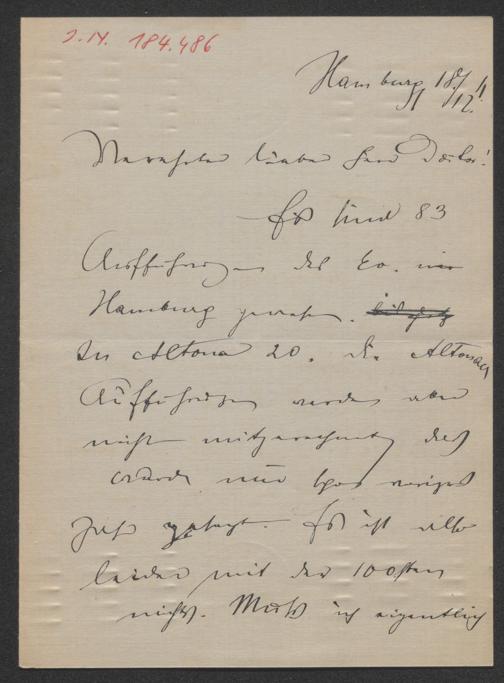 I.N. 184.486
Hamburg 18/11 12.
Verehrter lieber Herr Doctor!
Es sind 83
Aufführungen des Ev. in
Hamburg gewesen.
In Altona 20. Die Altonaer
Aufführungen werden aber
nicht mitgerechnet, das
wurde mir voriges
Jahr gesagt. Es ist also
leider mit der 100sten
nichts. Muß ich eigentlich